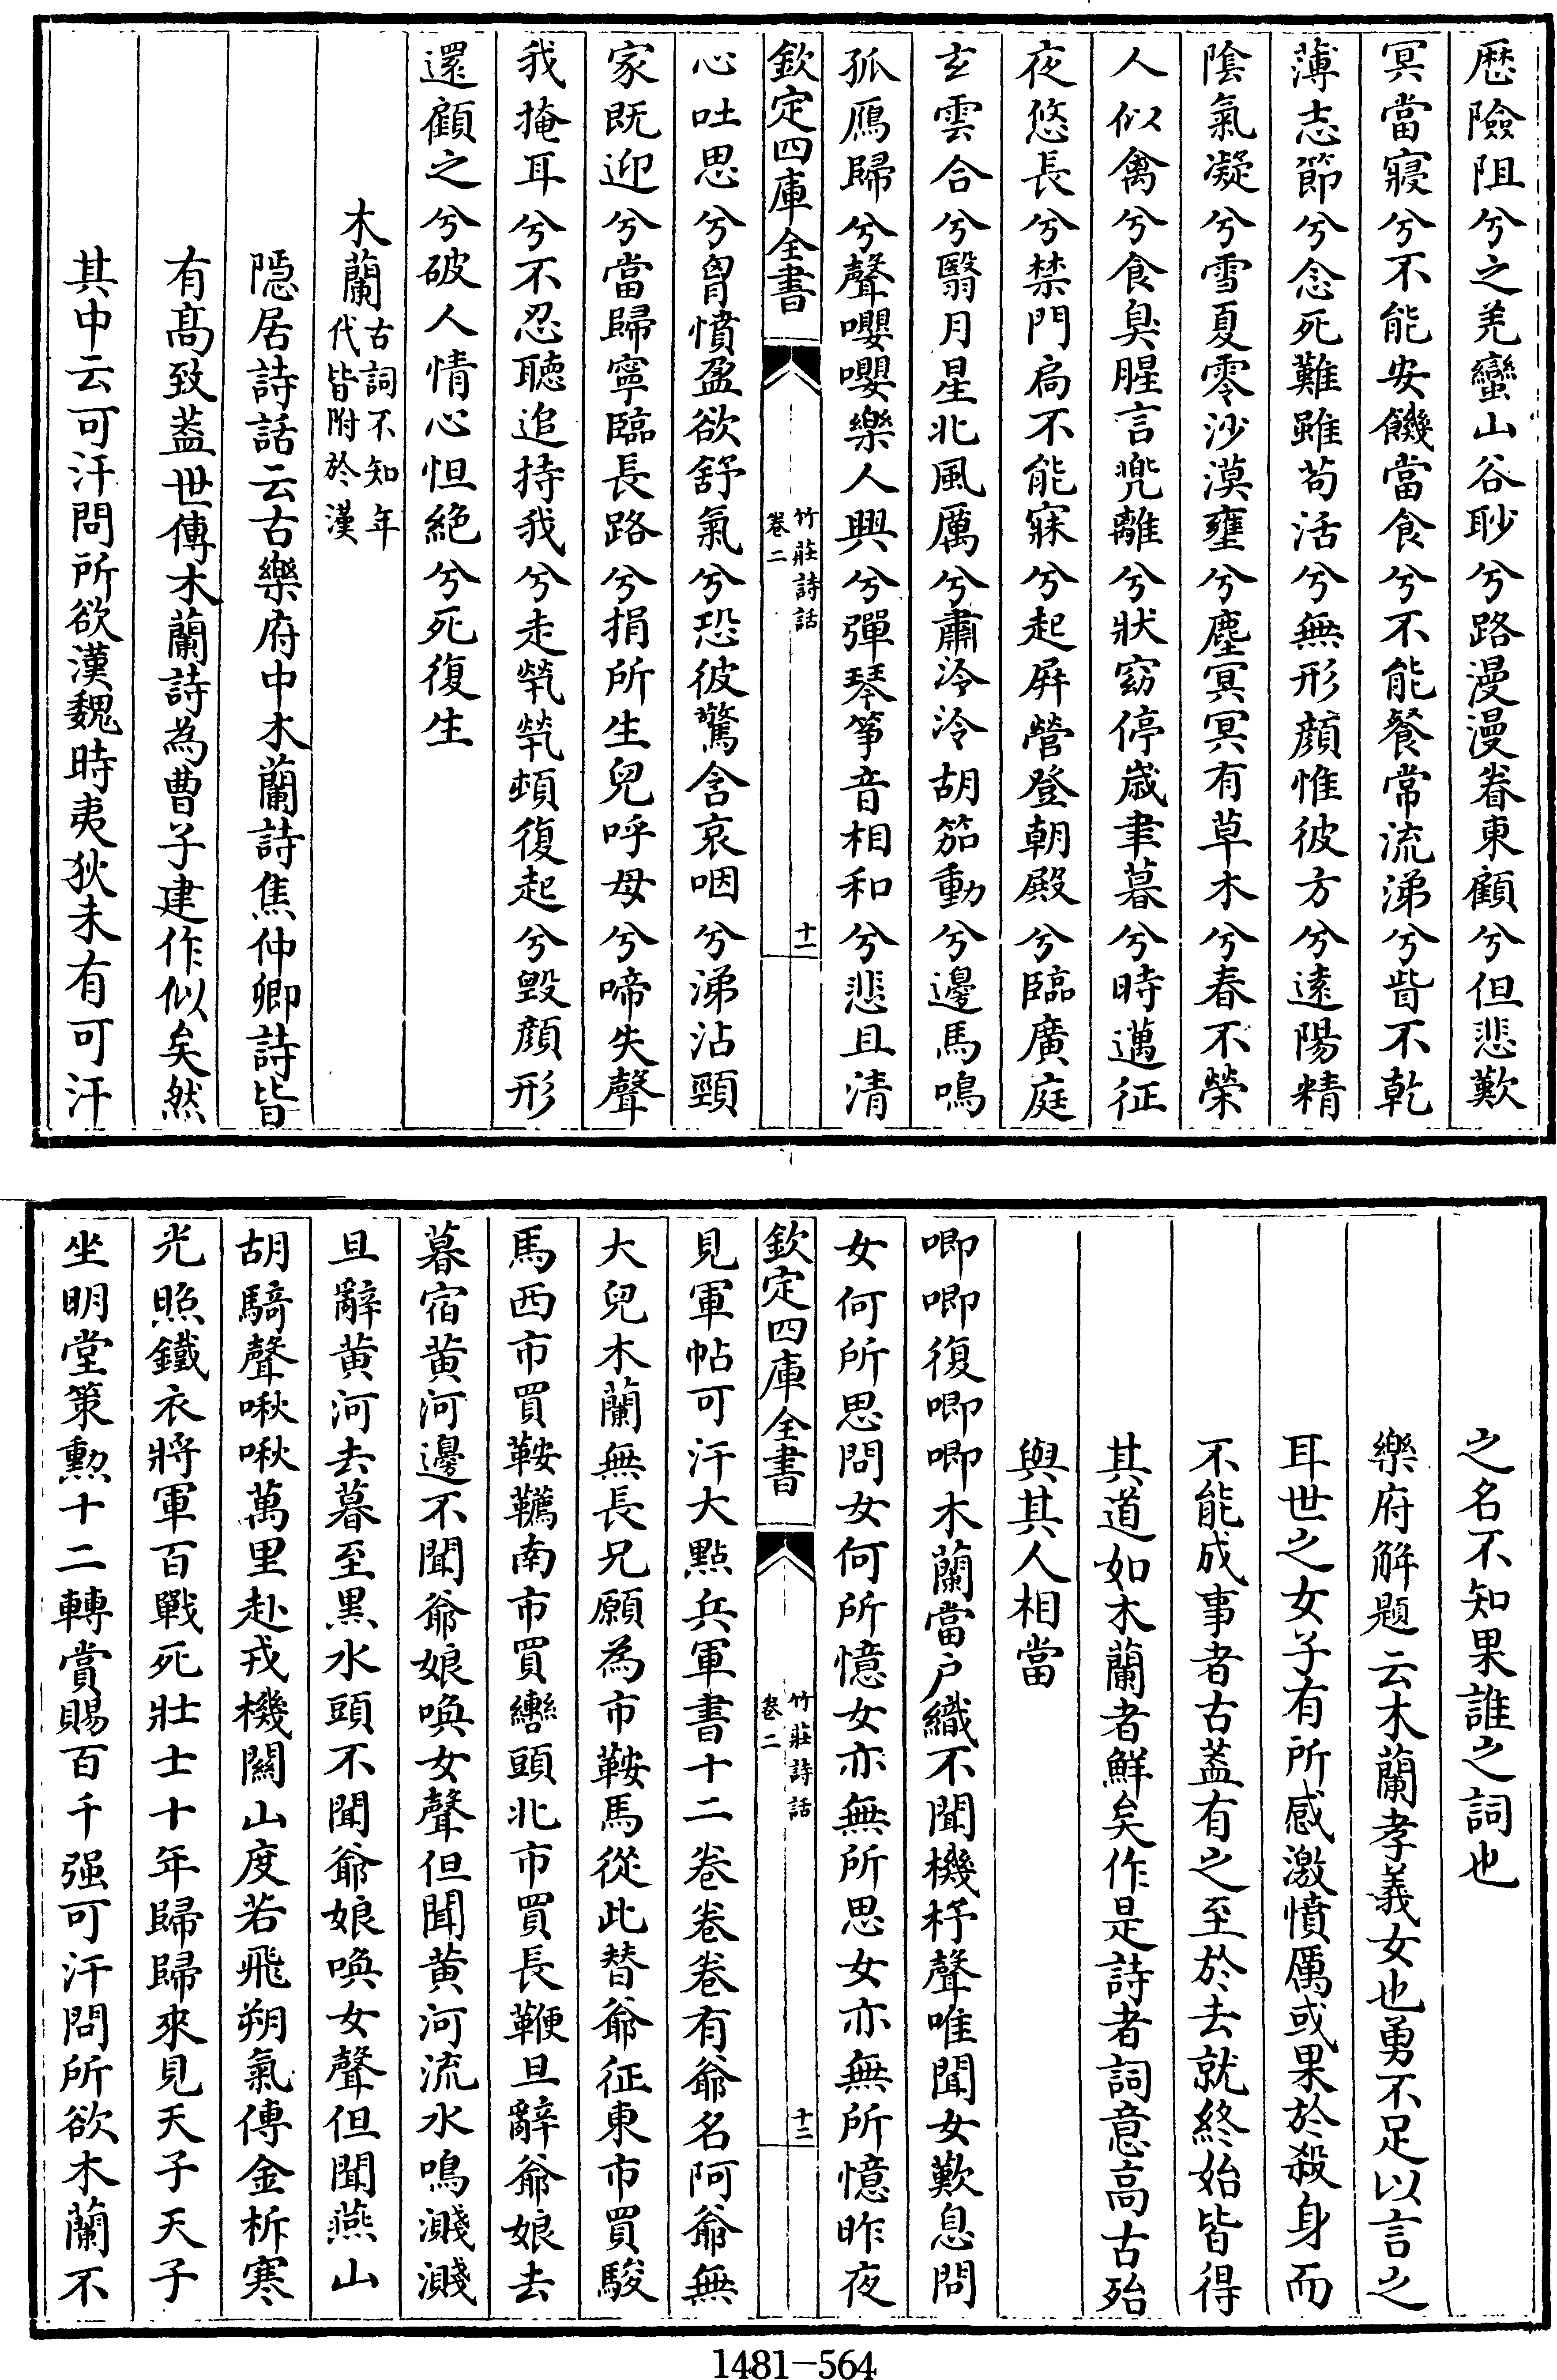 厯險阻兮之羌蠻山谷眇兮路漫漫眷東顧兮但悲歎
冥當寢兮不能安饑當食兮不能餐常流涕兮眥不乾
薄志節兮念死難雖茍活兮無形顔惟彼方兮逺陽精
隂氣凝兮雪夏零沙漠壅兮塵冥冥有草木兮春不榮
人似禽兮食臭腥言兜離兮狀窈停歳聿暮兮時邁征
夜悠長兮禁門扃不能寐兮起屏營登朝殿兮臨廣庭
𤣥雲合兮翳月星北風厲兮肅泠泠胡笳動兮邊馬鳴
孤鴈歸兮聲嚶嚶樂人興兮彈琴筝音相和兮悲且清
欽定四庫全書
竹莊詩話
卷二
十一
心吐思兮胷憤盈欲舒氣兮恐彼驚含哀咽兮涕沾頸
家既迎兮當歸寧臨長路兮捐所生兒呼母兮啼失聲
我掩耳兮不忍聽追持我兮走煢煢頓復起兮毁顔形
還顧之兮破人情心怛絶兮死復生
木蘭古詞不知年
代皆附於漢
隠居詩話云古樂府中木蘭詩焦仲卿詩皆
有髙致葢世傳木蘭詩為曹子建作似矣然
其中云可汗問所欲漢魏時夷狄未有可汗
之名不知果誰之詞也
樂府解題云木蘭孝義女也勇不足以言之
耳世之女子有所感激憤厲或果於殺身而
不能成事者古蓋有之至於去就終始皆得
其道如木蘭者鮮矣作是詩者詞意高古殆
與其人相當
唧唧復唧唧木蘭當户織不聞機杼聲唯聞女歎息問
女何所思問女何所憶女亦無所思女亦無所憶昨夜
欽定四庫全書
竹莊詩話
卷二
十二
見軍帖可汗大點兵軍書十二卷卷卷有爺名阿爺無
大兒木蘭無長兄願為市鞍馬從此替爺征東市買駿
馬西市買鞍韉南市買轡頭北市買長鞭旦辭爺娘去
暮宿黄河邊不聞爺娘喚女聲但聞黄河流水鳴濺濺
旦辭黄河去暮至黒水頭不聞爺娘喚女聲但聞燕山
胡騎聲啾啾萬里赴戎機闗山度若飛朔氣傳金柝寒
光照鐵衣將軍百戰死壯士十年歸歸來見天子天子
坐明堂策勲十二轉賞賜百千强可汗問所欲木蘭不
1481—564